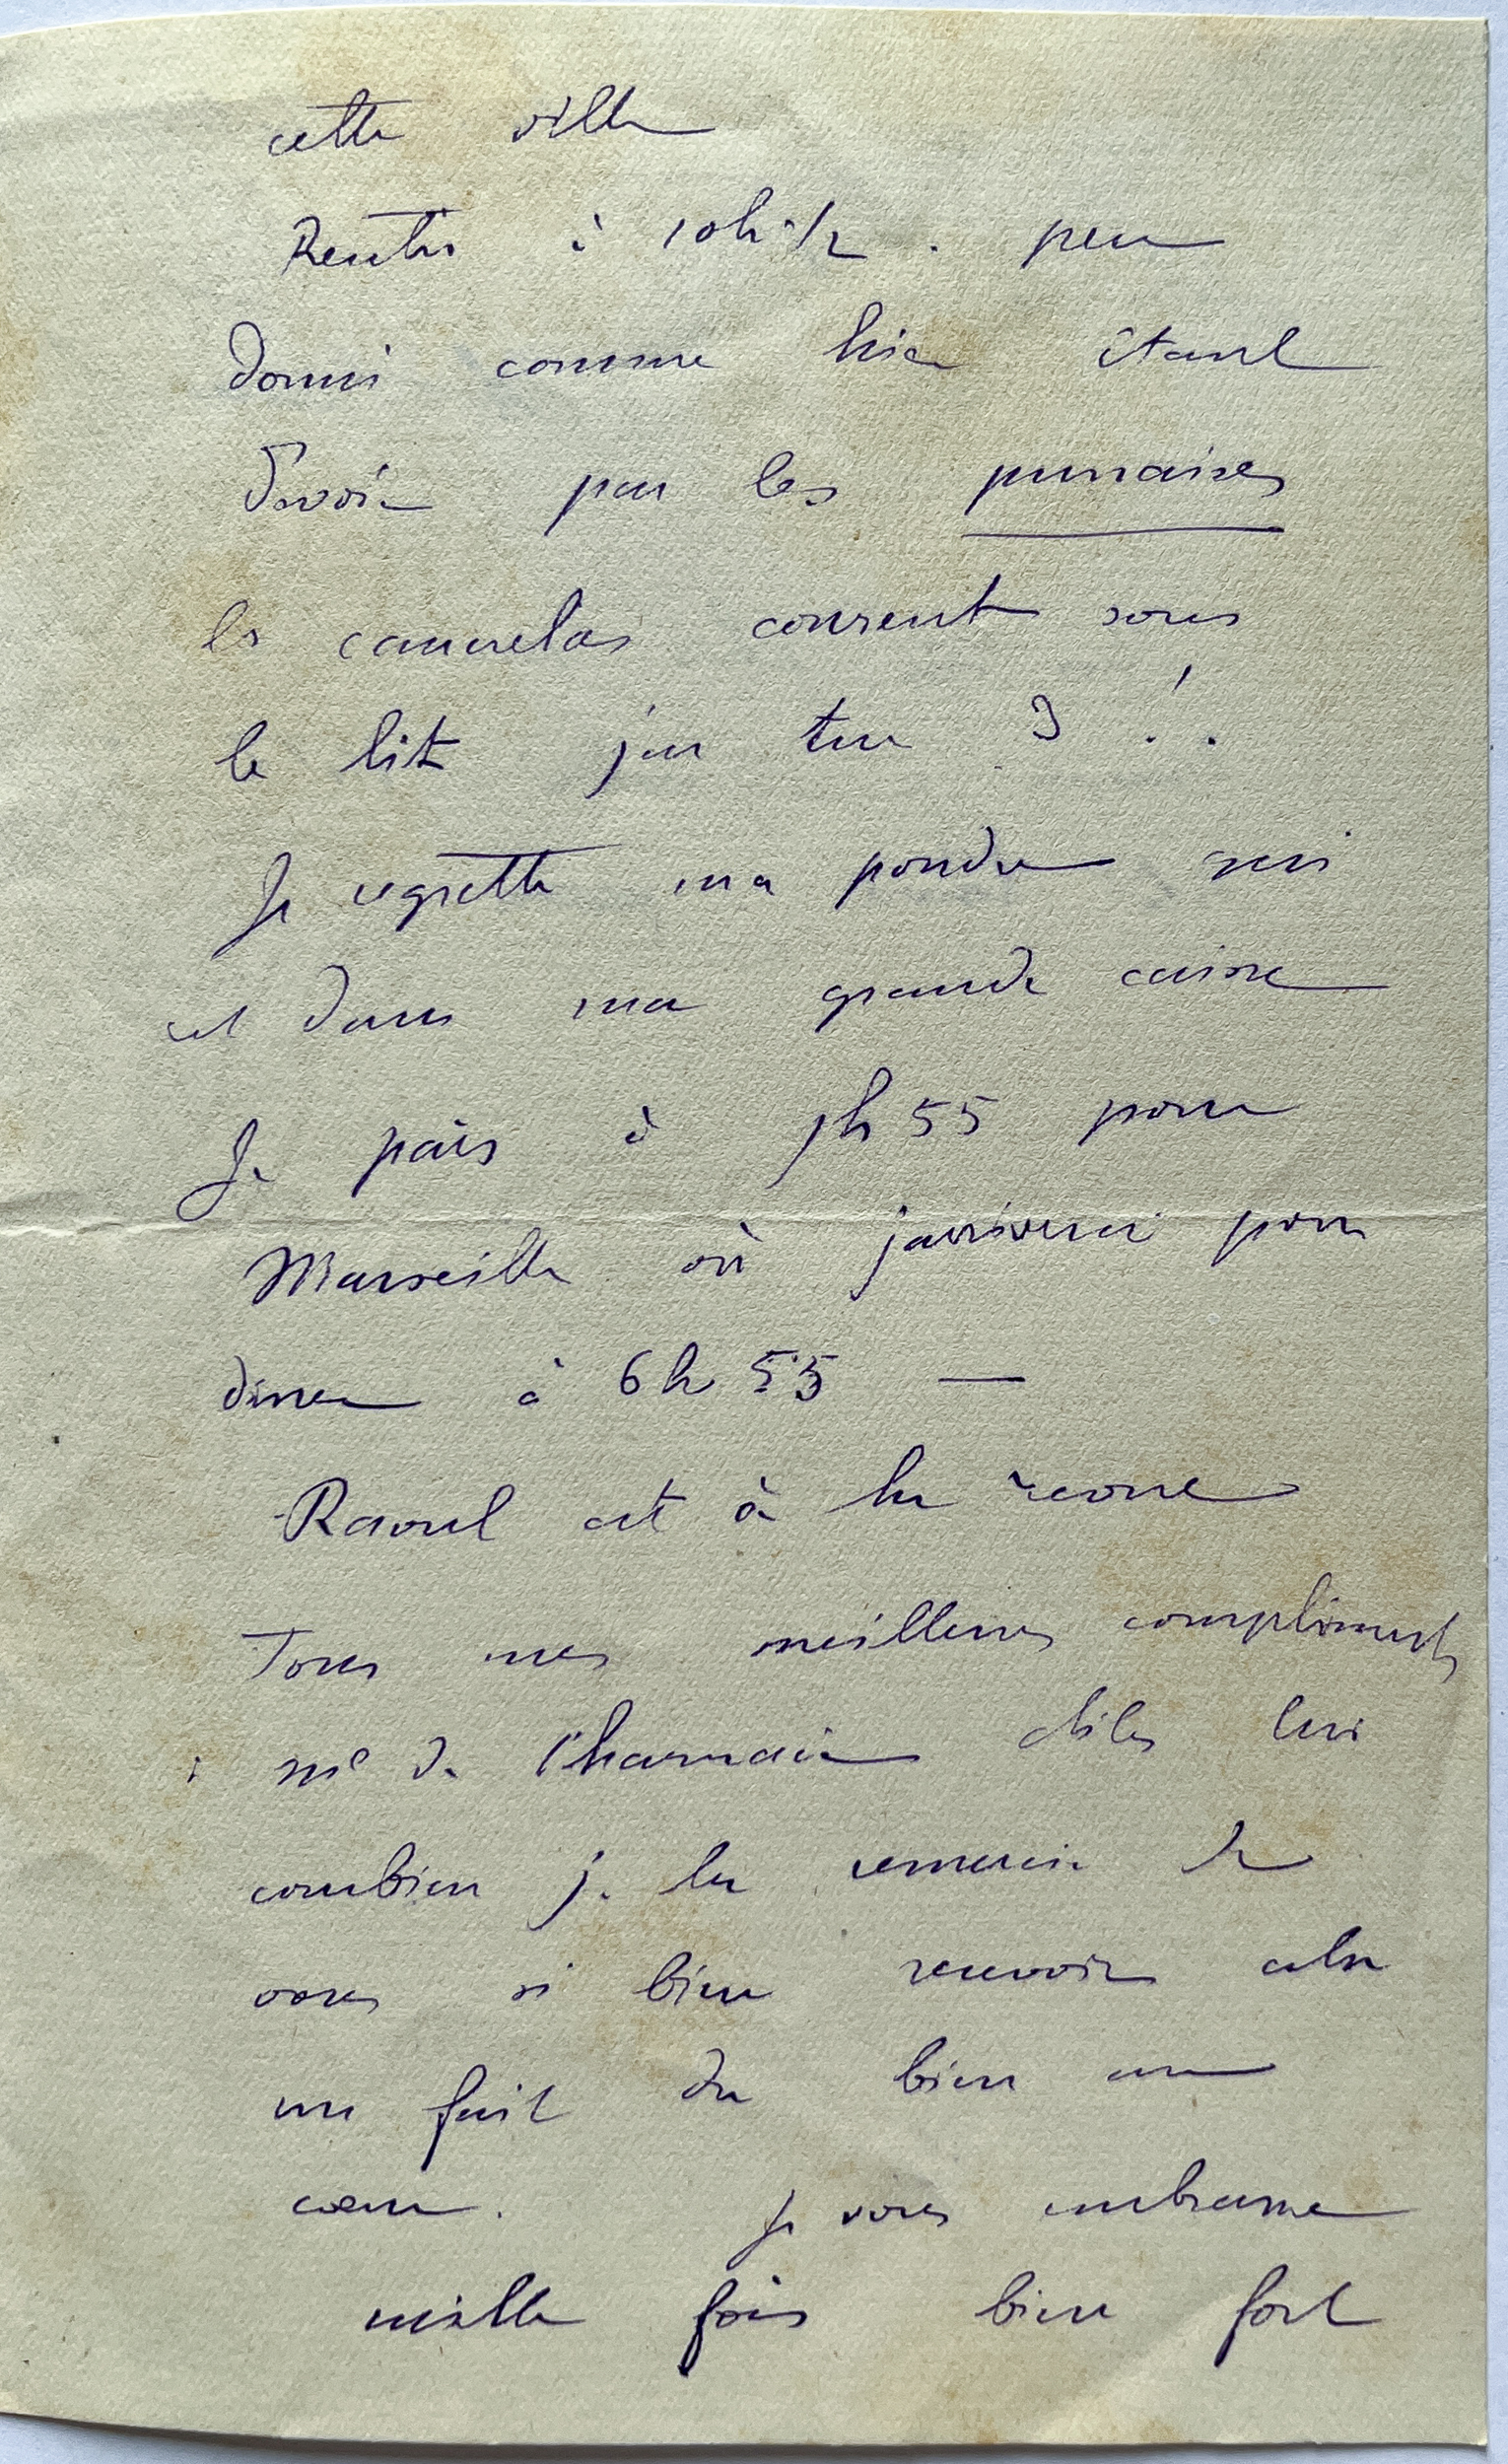 cette ville
Rentré à 10h 1/2 . peu
dormi comme hier étant
dévoré par les punaises
les cancrelas courent sous
le lit j'en tue 3 !
Je regrette ma poudre qui
est dans ma grande caisse
Je pars à 1h 55 pour
Marseille où j'arriverai pour
diner à 6h 55 —
Raoul est à la revue
Tous mes meilleurs compliments
à Me de Charnacé dites lui
combien je la remercie de
vous si bien recevoir cela
me fait du bien au
cœur. Je vous embrasse
mille fois bien fort